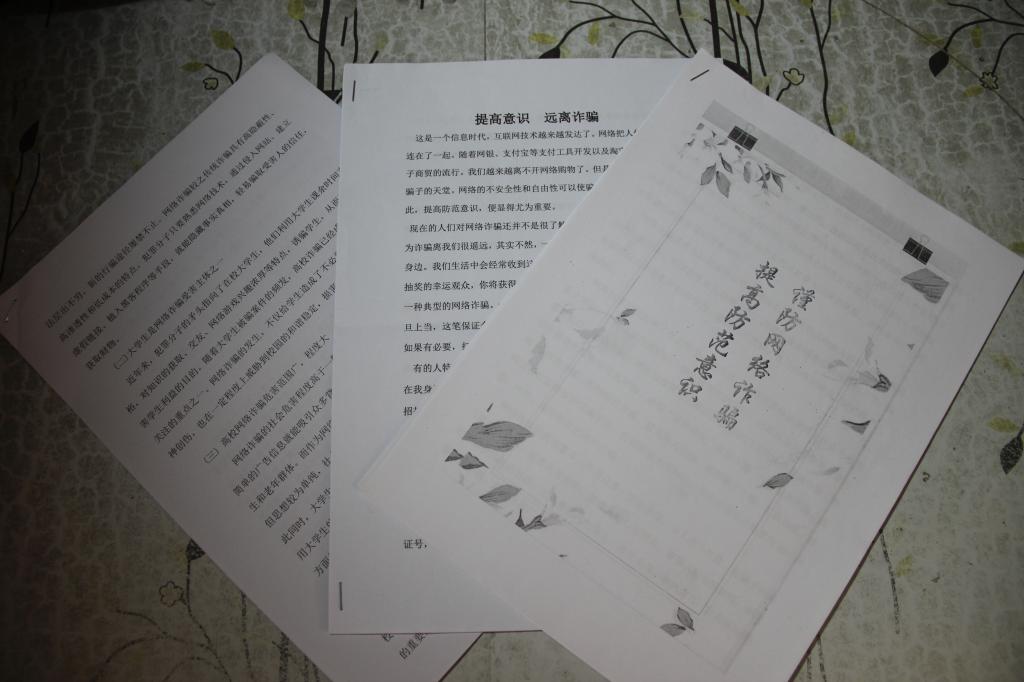 法层出不穷，新的行骗途径屡禁不止。网络诈骗较之传统诈骗具有高隐蔽性、
高渗透性和低成本的特点，犯罪分子只要熟悉网络技术，通过侵入网站、建立
虚假链接、植入黑客程序等手段，就能隐藏事实真相，轻易骗取受害人的信任，
获取财物。
(二)大学生是网络诈骗受害主体之一
近年来，犯罪分子的矛头指向了在校大学生，他们利用大学生课余时间
裕，对知识的获取、交友、网络游戏兴趣浓厚等特点，诱骗学生，从而
害学生利益的目的。随着大学生被骗案件的频发，高校诈骗已经成
关注的重点之一。网络诈骗的发生，不仅给学生造成了不必
神创伤，也在一定程度上威胁到校园的和谐稳定，损害
(三) 高校网络诈骗危害范围广，程度大
网络诈骗的社会危害程度高于一
简单的广告信息就能吸引众多
生和老年群体。而作为网
但思想较为单纯，社
此同时，大学生
用大学生
方面
校
的重要
提高意识 远离诈骗
这是一个信息时代，互联网技术越来越发达了。网络把人
连在了一起。随着网银、支付宝等支付工具开发以及淘宝
子商贸的流行，我们越来越离不开网络购物了。但是
骗子的天堂。网络的不安全性和自由性可以使骗
此，提高防范意识，便显得尤为重要。
现在的人们对网络诈骗还并不是很了解
为诈骗离我们很遥远，其实不然，一
身边。我们生活中会经常收到这
抽奖的幸运观众，你将获得
一种典型的网络诈骗。
旦上当，这笔保证金
如果有必要，打
有的人特
在我身
招
证号，
谨防网络诈骗
提高防范意识